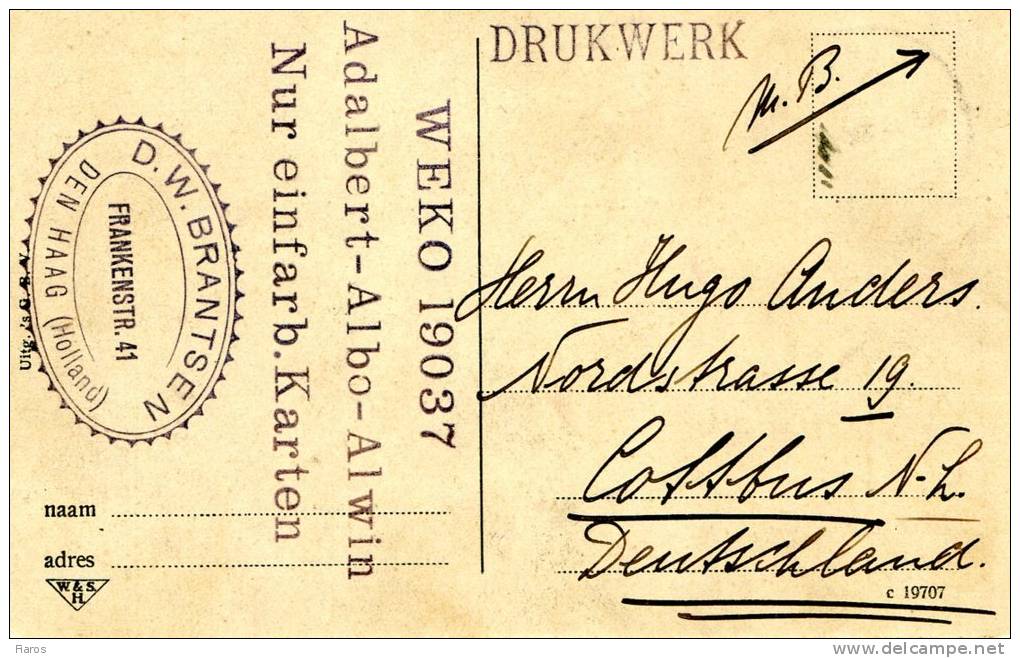 DRUKWERK
M. B.
WEKO 19037
Adalbert-Albo-Alwin
Nur einfarb. Karten
D. W. BRANTSEN
FRANKENSTR. 41
DEN HAAG (Holland)
Herrn Hugo Anders.
Nordstrasse 19.
Cottbus N-L.
Deutschland.
naam
adres
W. & S.
H.
c 19707
Raros
www.delcampe.net